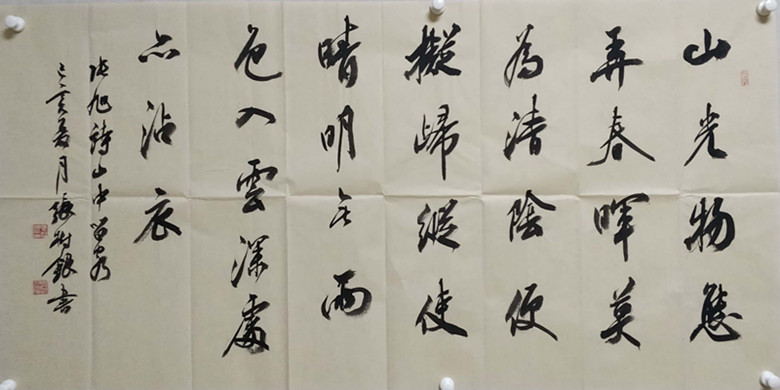 山光物態
弄春暉莫
為清陰便
擬歸縱使
晴明無雨
色入雲深處
亦沾衣
張旭詩山中留客
己亥夏月張樹銀書